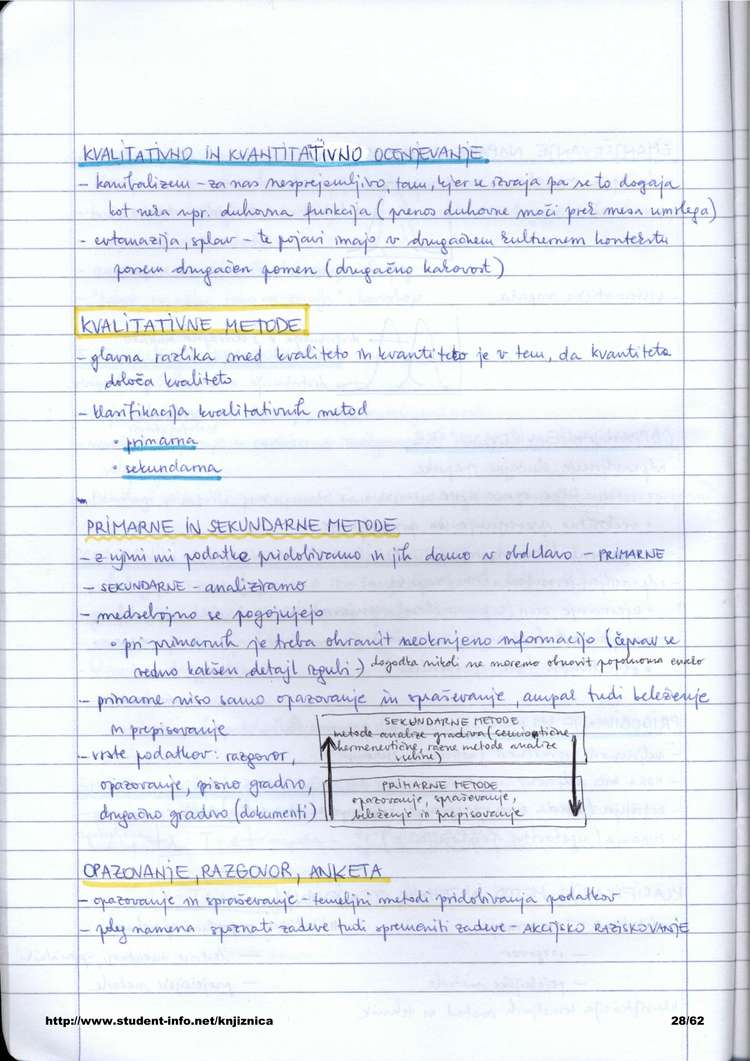 KVALITATIVNO IN KVANTITATIVNO OCENJEVANJE
- kanibalizem - za nas nesprejemljivo, tam, kjer se izvaja pa se to dogaja
kot neka npr. duhovna funkcija (prenos duhovne moči prek mesa umrlega)
- evtanazija, splav - te pojavi imajo v drugačnem kulturnem kontekstu
povsem drugačen pomen (drugačno kakovost)
KVALITATIVNE METODE
- glavna razlika med kvaliteto in kvantiteto je v tem, da kvantiteta
določa kvaliteto
- klasifikacija kvalitativnih metod
• primarna
• sekundarna
PRIMARNE IN SEKUNDARNE METODE
- z njimi mi podatke pridobivamo in jih damo v obdelavo - PRIMARNE
- SEKUNDARNE - analiziramo
- medsebojno se pogojujejo
• pri primarnih je treba ohranit neokrnjeno informacijo (čeprav se
vedno kakšen detajl izgubi -) dogodka nikoli ne moremo obnovit popolnoma enako
- primarne niso samo opazovanje in spraševanje, ampak tudi beleženje
in prepisovanje
- vrste podatkov: razgovor,
opazovanje, pisno gradivo,
drugačno gradivo (dokumenti)
SEKUNDARNE METODE
metode analize gradiva (semiotične,
hermenevtične, razne metode analize
vsebine)
PRIMARNE METODE
opazovanje, spraševanje,
beleženje in prepisovanje
OPAZOVANJE, RAZGOVOR, ANKETA
- opazovanje in spraševanje - temeljni metodi pridobivanja podatkov
- poleg namena spoznati zadeve tudi spremeniti zadeve - AKCIJSKO RAZISKOVANJE
http://www.student-info.net/knjiznica
28/62